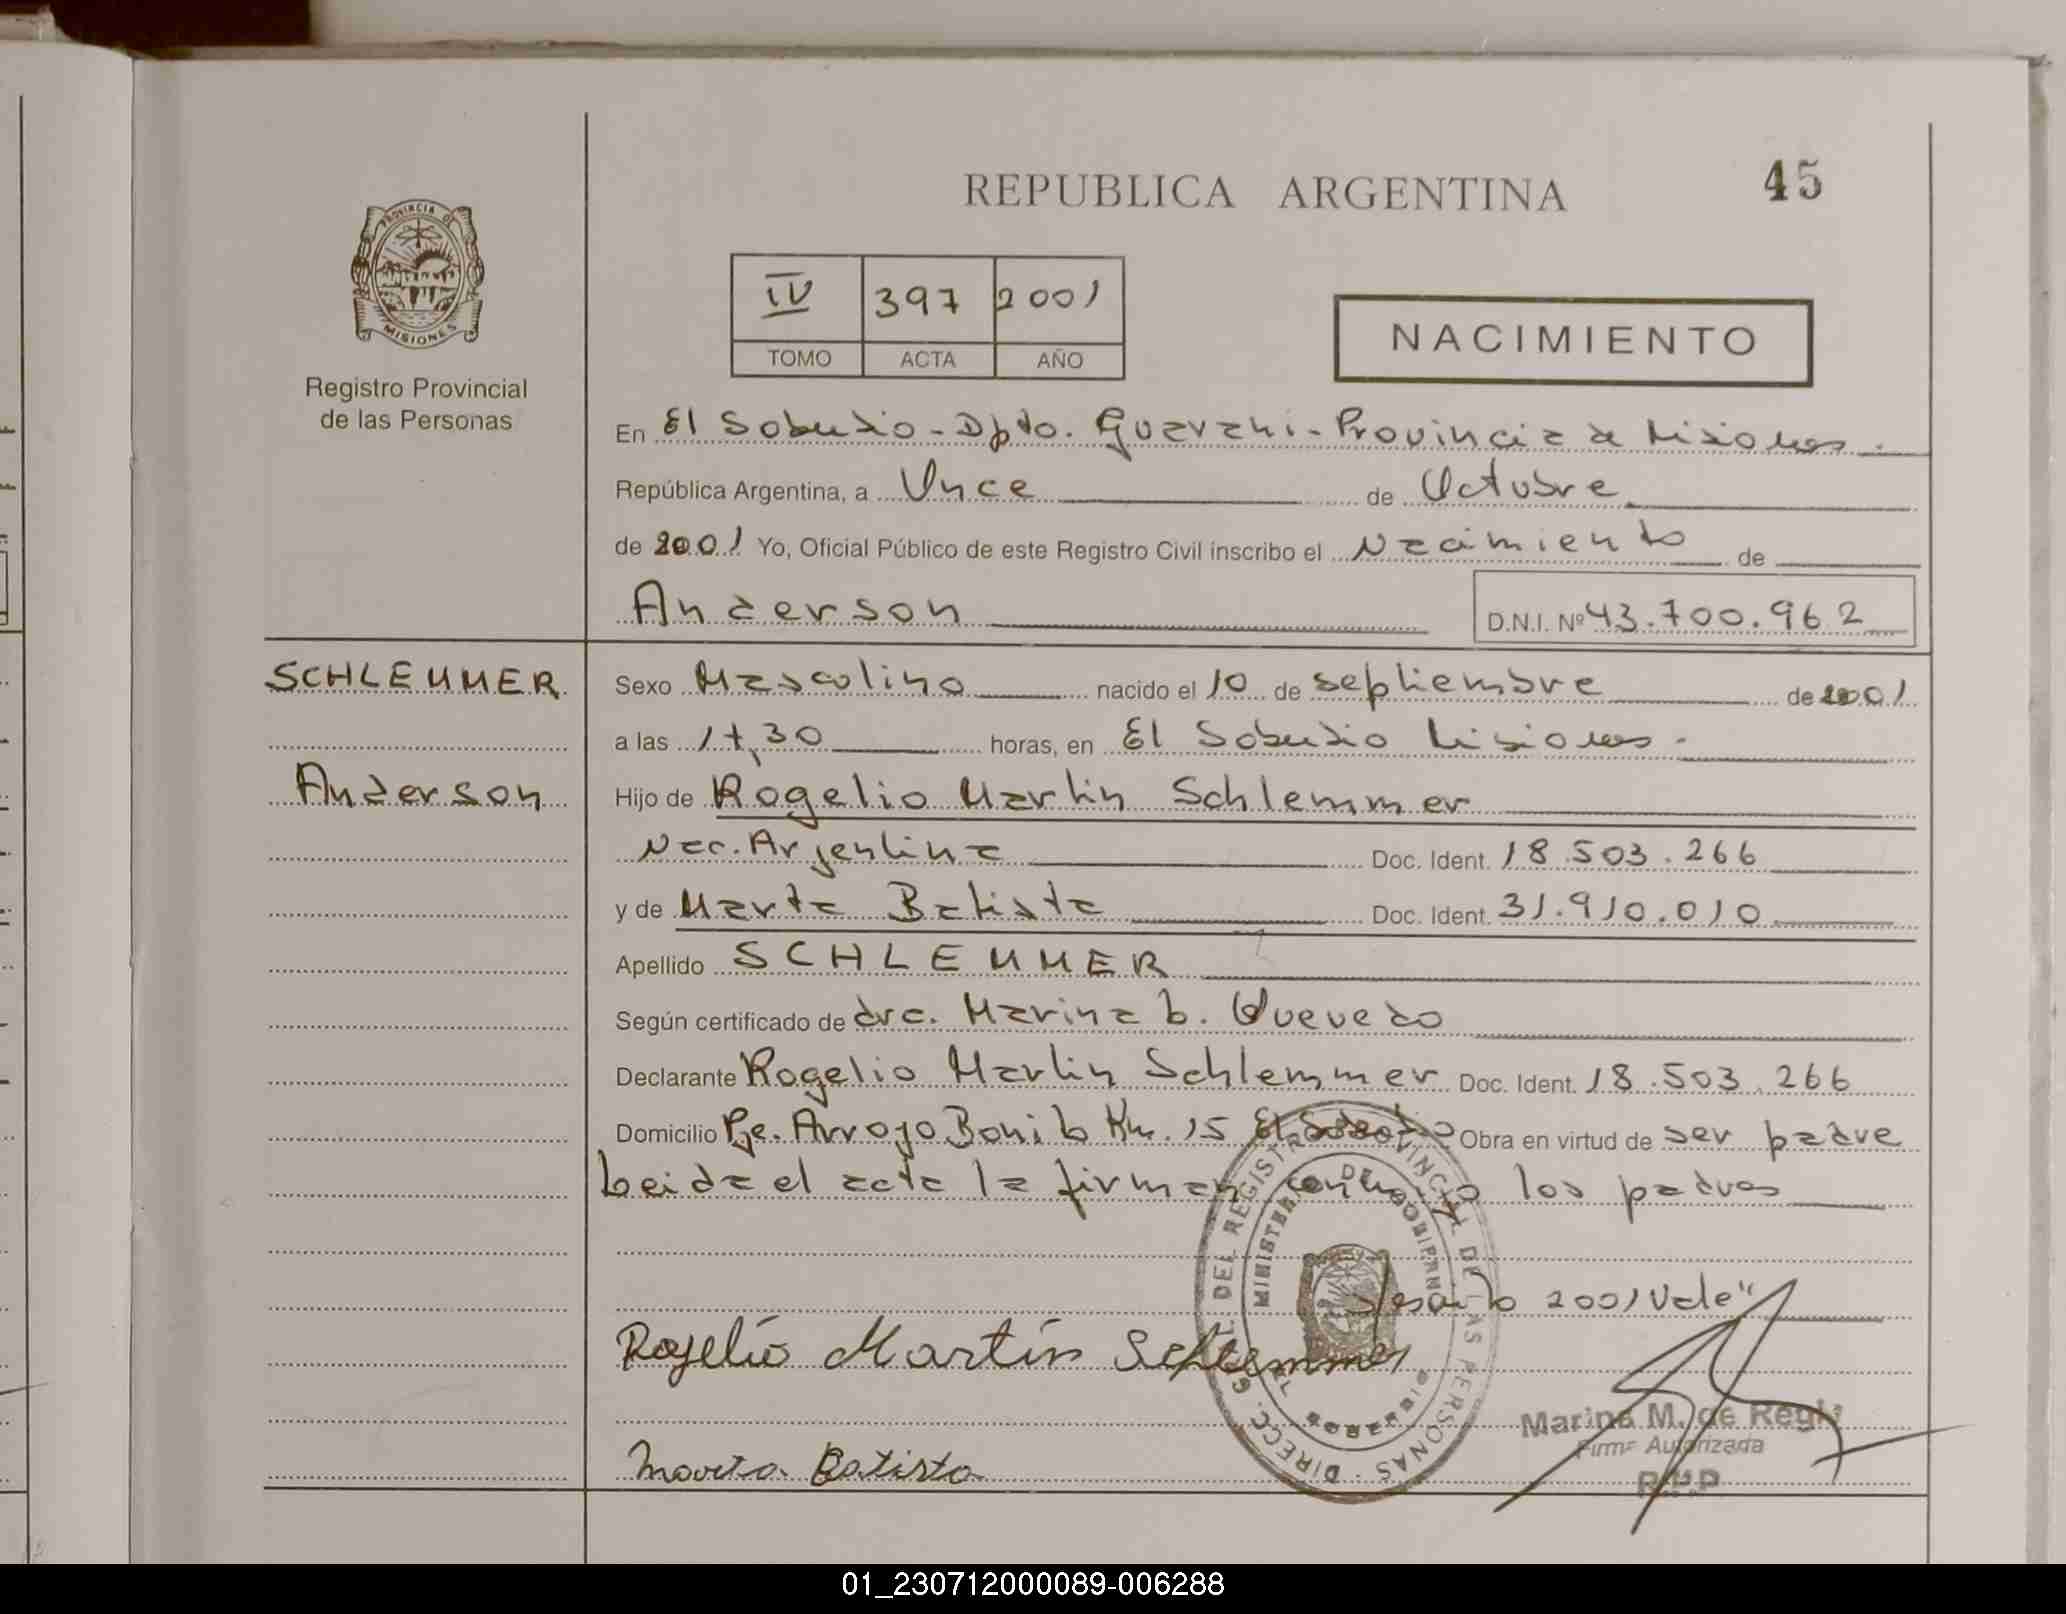 REPUBLICA ARGENTINA
45
PROVINCIA DE
MISIONES
Registro Provincial
de las Personas
IV 397 2001
TOMO ACTA AÑO
NACIMIENTO
En El Soberbio - Dpto. Guarani - Provincia de Misiones.
República Argentina, a Once de Octubre
de 2001 Yo, Oficial Público de este Registro Civil inscribo el Nacimiento de
Anderson
D.N.I. Nº 43.700.962
SCHLEMMER
Anderson
Sexo Masculino nacido el 10 de septiembre de 2001
a las 17,30 horas, en El Soberbio Misiones.
Hijo de Rogelio Martin Schlemmer
Nac. Argentina Doc. Ident. 18.503.266
y de Marta Batista Doc. Ident. 31.910.010
Apellido SCHLEMMER
Según certificado de dra. Marina b. Quevedo
Declarante Rogelio Martin Schlemmer Doc. Ident. 18.503.266
Domicilio Pje. Arroyo Bonito Km. 15 El Soberbio Obra en virtud de ser padre
Leida el acta la firman conmigo los padres
2001 Vale"
Rogelio Martin Schlemmer
Marta Batista
DIRECC. GRAL. DEL REGISTRO PROVINCIAL DE LAS PERSONAS
MINISTERIO DE GOBIERNO
Marina M. de Regis
Firma Autorizada
R.P.P
01_230712000089-006288